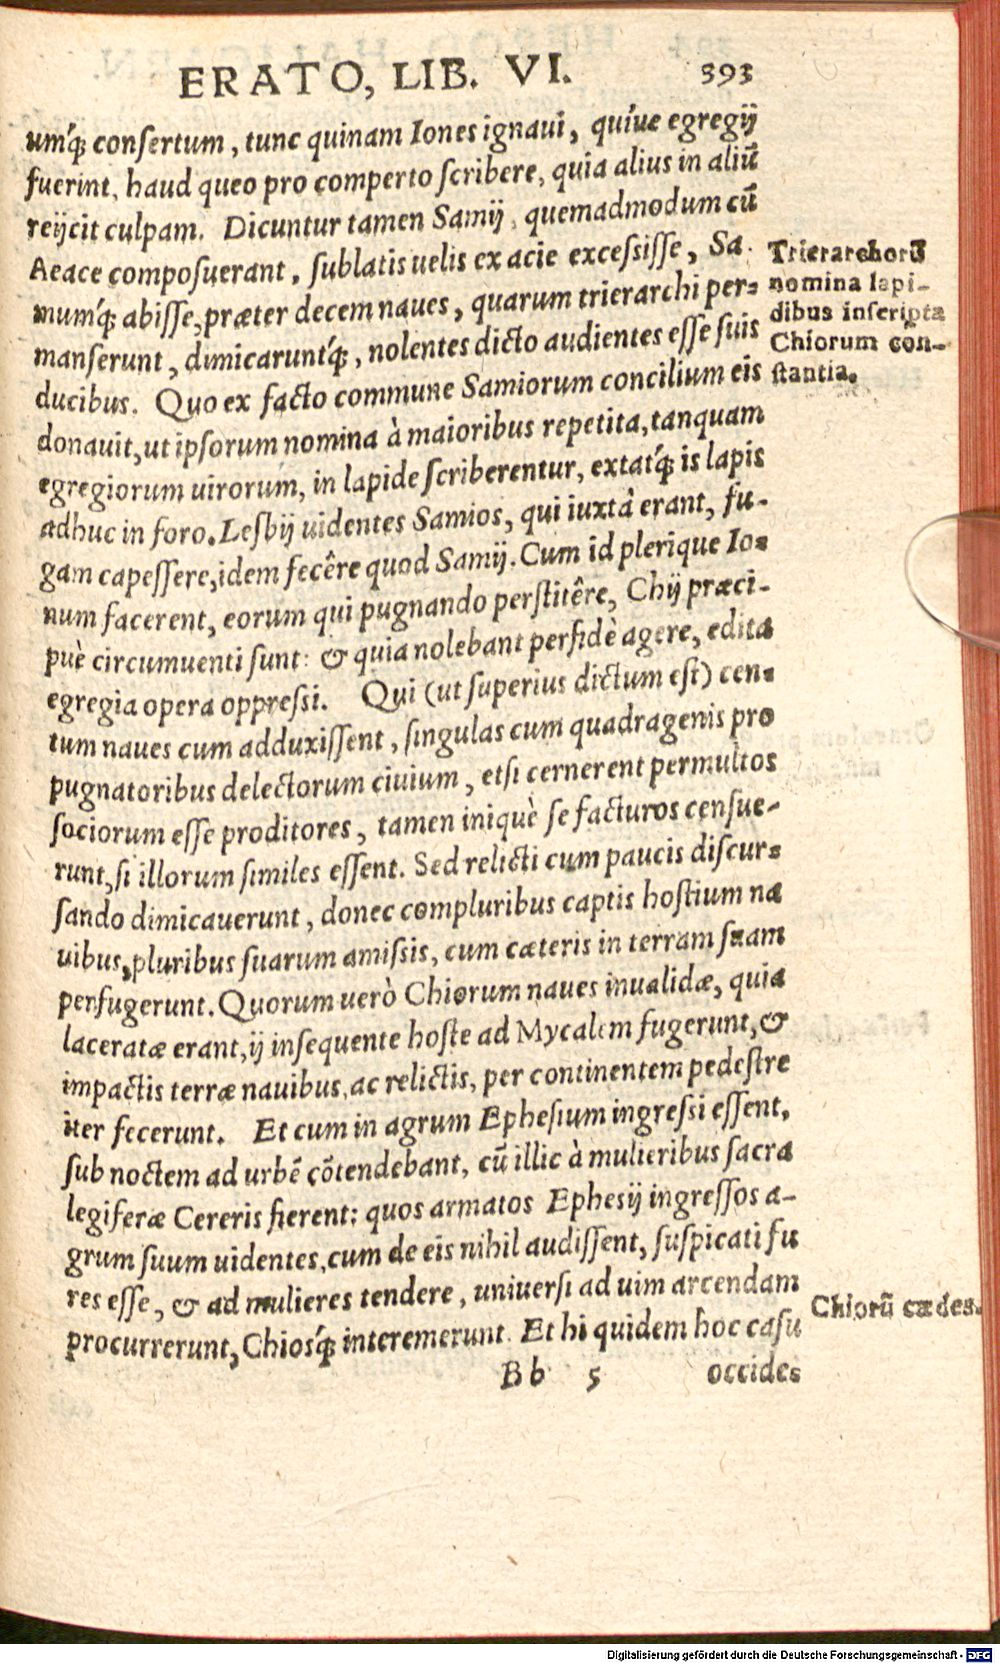 ERATO, LIB. VI. 393
umq́; consertum, tunc quinam Iones ignaui, quíue egregij
fuerint, haud queo pro comperto scribere, quia alius in aliū
reijcit culpam. Dicuntur tamen Samij, quemadmodum cū
Aeace composuerant, sublatis uelis ex acie excessisse, Sa
mumq́; abisse, præter decem naues, quarum trierarchi per-
manserunt, dimicaruntq́;, nolentes dicto audientes esse suis
ducibus. Quo ex facto commune Samiorum concilium eis
donauit, ut ipsorum nomina à maioribus repetita, tanquam
egregiorum uirorum, in lapide scriberentur, extatq́; is lapis
adhuc in foro. Lesbij uidentes Samios, qui iuxtà erant, fu-
gam capessere, idem fecêre quod Samij. Cum id plerique Io-
num facerent, eorum qui pugnando perstitêre, Chij præci-
puè circumuenti sunt: & quia nolebant perfidè agere, edita
egregia opera oppressi. Qui (ut superius dictum est) cen-
tum naues cum adduxissent, singulas cum quadragenis pro
pugnatoribus delectorum ciuium, etsi cernerent permultos
sociorum esse proditores, tamen iniquè se facturos censue-
runt, si illorum similes essent. Sed relicti cum paucis discur-
sando dimicauerunt, donec compluribus captis hostium na
uibus, pluribus suarum amissis, cum cæteris in terram suam
perfugerunt. Quorum uerò Chiorum naues inualidæ, quia
laceratæ erant, ij insequente hoste ad Mycalem fugerunt, &
impactis terræ nauibus, ac relictis, per continentem pedestre
iter fecerunt. Et cum in agrum Ephesium ingressi essent,
sub noctem ad urbē cōtendebant, cū illic à mulieribus sacra
legiferæ Cereris fierent: quos armatos Ephesij ingressos a-
grum suum uidentes, cum de eis nihil audissent, suspicati fu
res esse, & ad mulieres tendere, uniuersi ad uim arcendam
procurrerunt, Chiosq́; interemerunt. Et hi quidem hoc casu
Bb 5 occides
Trierarchorū
nomina lapi-
dibus inscripta
Chiorum con-
stantia.
Chiorū cædes.
Digitalisierung gefördert durch die Deutsche Forschungsgemeinschaft - DFG